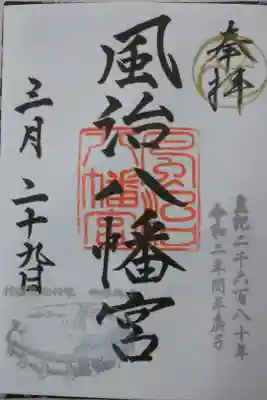 奉拝
皇紀二千六百八十年
令和二年閏年庚子
風治八幡宮
三月二十九日